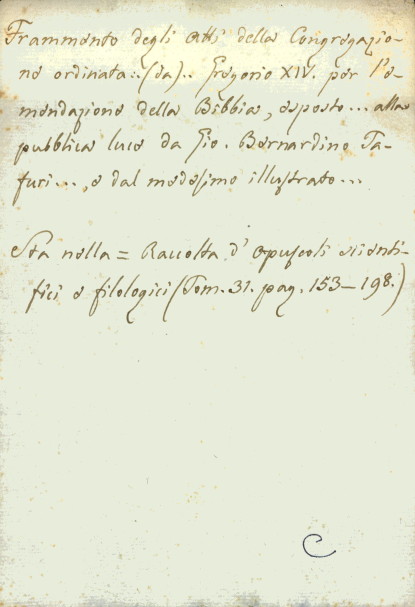 Frammento degli atti della Congregazio-
ne ordinata..(da).. Gregorio XIV. per l'e-
mendazione della Bibbia, esposto... alla
pubblica luce da Gio. Bernardino Ta-
furi..., e dal medesimo illustrato...
Sta nella = Raccolta d'opuscoli scienti-
fici e filologici (Tom. 31. pag. 153-198.)
C